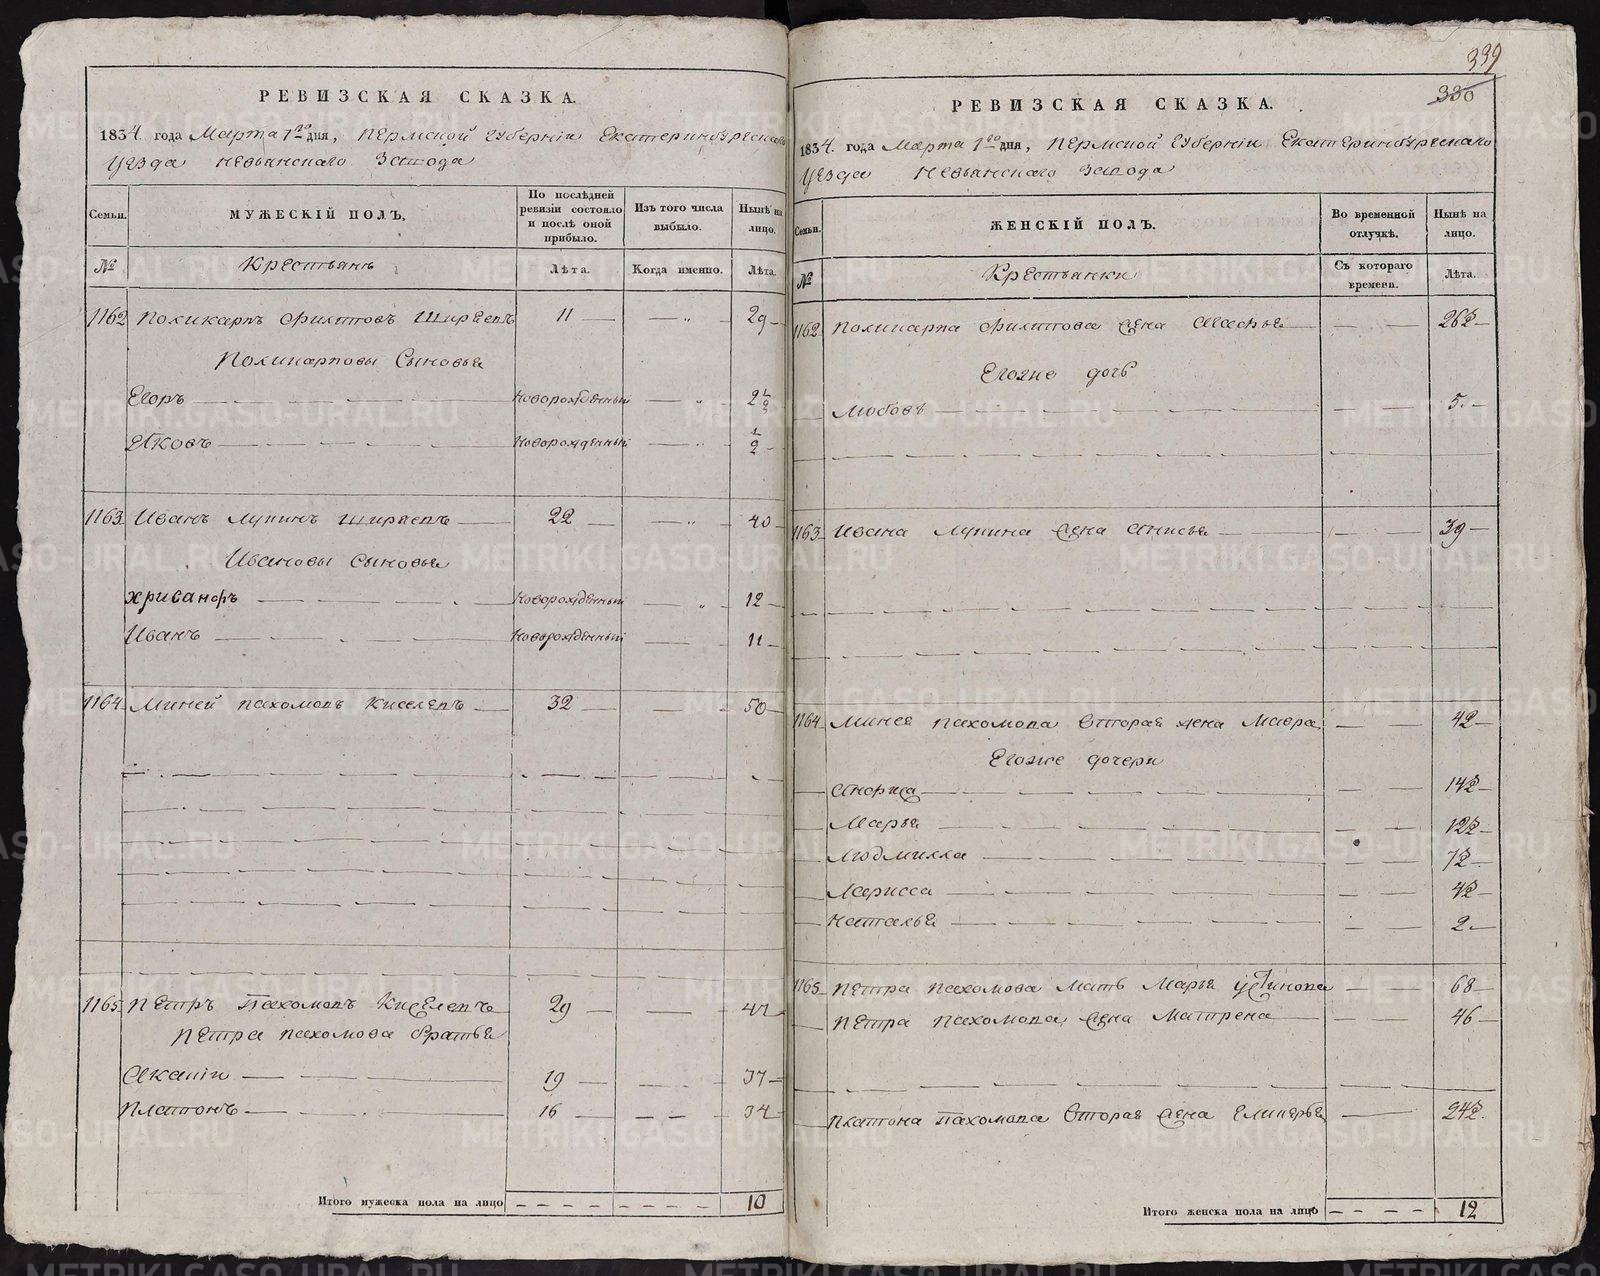 РЕВИЗСКАЯ СКАЗКА.
1834. года Марта 1го дня, Пермской Губерніи Екатеринбургскаго
Уезда Невьянскаго Завода
Семьи.
МУЖЕСКІЙ ПОЛЪ,
По послѣдней ревизіи состояло и послѣ оной прибыло.
Изъ того числа выбыло.
Нынѣ на лицо.
№
Крестьянъ
Лѣта.
Когда именно.
Лѣта.
1162 Поликарпъ Филиповъ Ширяевъ 11 — — „ 29
Поликарповы Сыновья
Егоръ — новорожденный — „ 2½
Яковъ — новорожденный — „ ½
1163 Иванъ Лупинъ Ширяевъ — 22 — — „ 40
Ивановы сыновья
Хрисанфъ — новорожденный — „ 12
Иванъ — новорожденный — 11
1164 Миней Пахомовъ Киселевъ — 32 — — 50
1165 Петръ Пахомовъ Киселевъ 29 — — 47
Петра Пахомова братья
Акапіи — 19 — — 37
Платонъ — 16 — — 34
Итого мужеска пола на лицо 10
339
330
РЕВИЗСКАЯ СКАЗКА.
1834. года Марта 1го дня, Пермской Губерніи Екатеринбургскаго
Уезда Невьянскаго Завода
Семьи.
ЖЕНСКІЙ ПОЛЪ.
Во временной отлучкѣ.
Нынѣ на лицо.
№
Крестьянки
Съ котораго времени.
Лѣта.
1162 Поликарпа Филипова жена — — 26½
Егоже дочь
Любовь — 5.
1163 Ивана Лупина жена Анисья — 39
1164 Минея Пахомова вторая жена Мавра — 42
Егоже дочери
Анфиса — 14½
Марья — 12½
Людмилла — 7½
Лариса — 4½
Наталья — 2.
1165 Петра Пахомова мать Марья Устинова — 68
Петра Пахомова жена Матрена — 46
Платона Пахомова вторая жена — 24½.
Итого женска пола на лицо 12
METRIKI.GASO-URAL.RU